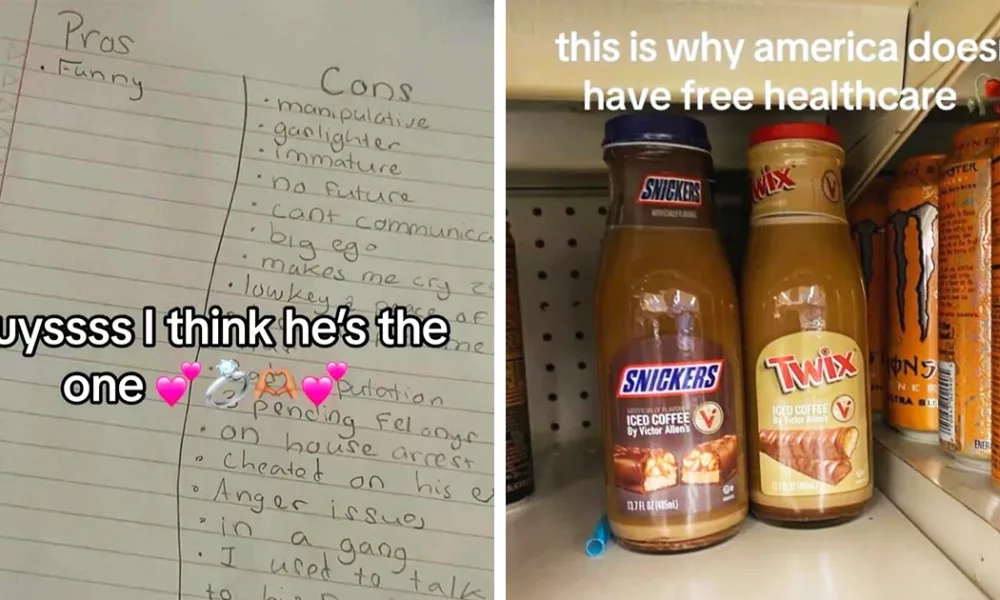 Pros
• Funny
Cons
• manipulative
• gaslighter
• immature
• no future
• cant communica
• big ego
• makes me cry
• lowkey a peace of
me
putation
pending felonys
• on house arrest
• cheated on his e
• Anger issues
• in a gang
• I used to talk
to his
uyssss I think he's the
one 💕💍🫶💕
this is why america does
have free healthcare
SNICKERS
ARTIFICIALLY FLAVORED
SNICKERS
ICED COFFEE
By Victor Allen's
V
13.7 FL OZ (405mL)
TWIX
V
TWIX
ICED COFFEE
By Victor Allen's
V
13.7 FL OZ
MONSTER
ULTRA SU
ENER